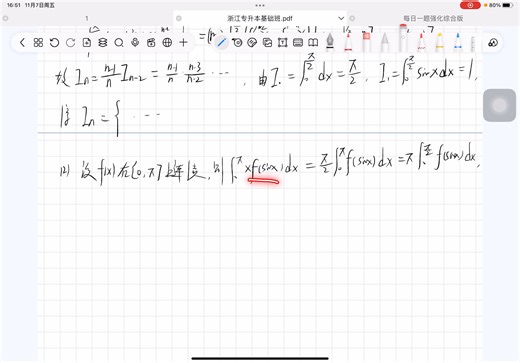 16:51 11月7日周五
80%
1
浙江专升本基础班.pdf
每日一题强化综合版
故 Iₙ = (n-1)/n Iₙ₋₂ = (n-1)/n (n-3)/(n-2) ⋯ , 由 I₀ = ∫₀^(π/2) dx = π/2 , I₁ = ∫₀^(π/2) sinx dx = 1 ,
Iₙ = { ⋯
(2) 设 f(x) 在 [0, π] 连续, 则 ∫₀^π x f(sinx) dx = π/2 ∫₀^π f(sinx) dx = π ∫₀^(π/2) f(sinx) dx ,